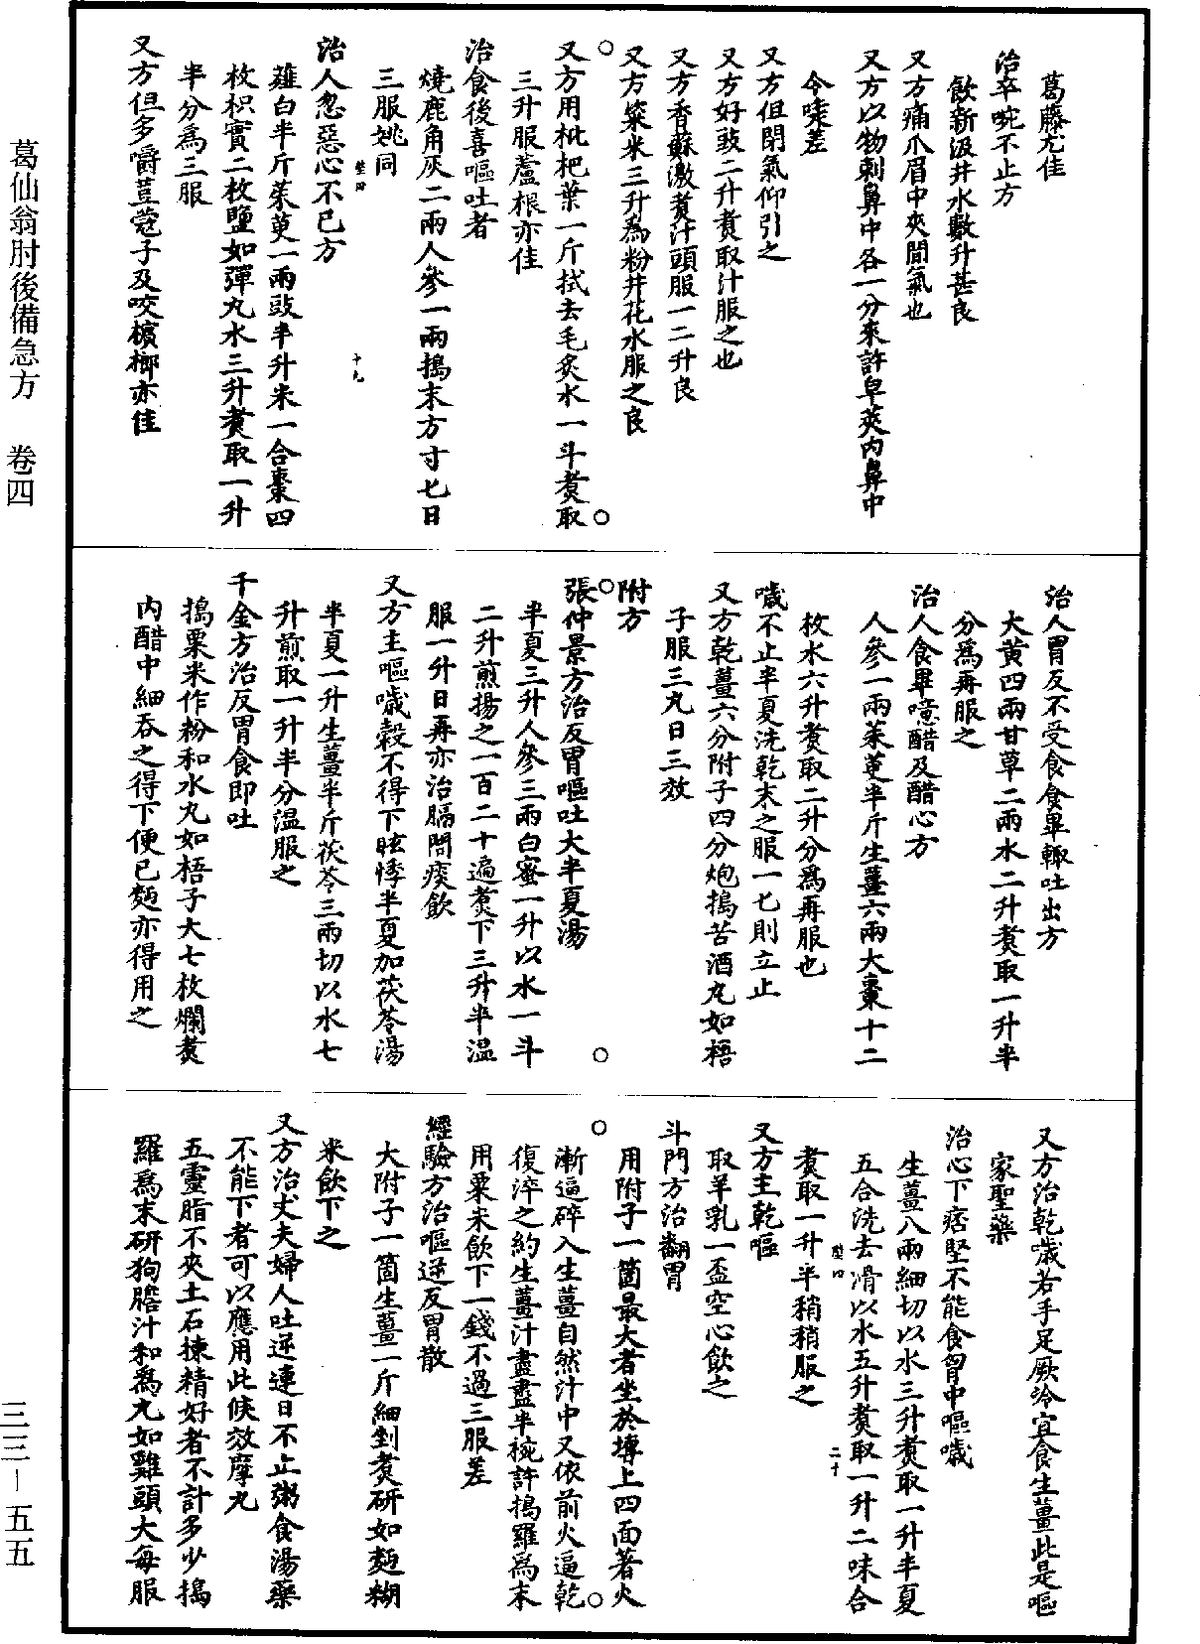 葛藤尤佳
治卒啘不止方
飲新汲井水數升甚良
又方痛爪眉中夾間氣也
又方以物刺鼻中各一分來許皁莢內鼻中
令嚏差
又方但閉氣仰引之
又方好豉二升煑取汁服之也
又方香蘇濃煑汁頓服一二升良
又方粢米三升爲粉井花水服之良
又方用枇杷葉一斤拭去毛炙水一斗煑取
三升服蘆根亦佳
治食後喜嘔吐者
燒鹿角灰二兩人參一兩搗末方寸匕日
三服姚同
治人忽惡心不已方
薤白半斤茱萸一兩豉半升米一合棗四
枚枳實二枚鹽如彈丸水三升煑取一升
半分爲三服
又方但多嚼荳蔻子及咬檳榔亦佳
治人胃反不受食食畢輒吐出方
大黃四兩甘草二兩水二升煑取一升半
分爲再服之
治人食畢噫醋及醋心方
人參一兩茱萸半斤生薑六兩大棗十二
枚水六升煑取二升分爲再服也
噦不止半夏洗乾末之服一匕則立止
又方乾薑六分附子四分炮搗苦酒丸如梧
子服三丸日三效
附方
張仲景方治反胃嘔吐大半夏湯
半夏三升人參三兩白蜜一升以水一斗
二升煎揚之一百二十遍煑下三升半溫
服一升日再亦治膈間痰飲
又方主嘔噦穀不得下眩悸半夏加茯苓湯
半夏一升生薑半斤茯苓三兩切以水七
升煎取一升半分溫服之
千金方治反胃食即吐
搗粟米作粉和水丸如梧子大七枚爛煑
內醋中細吞之得下便已麪亦得用之
又方治乾噦若手足厥冷宜食生薑此是嘔
家聖藥
治心下痞堅不能食胷中嘔噦
生薑八兩細切以水三升煑取一升半夏
五合洗去滑以水五升煑取一升二味合
煑取一升半稍稍服之
又方主乾嘔
取羊乳一盃空心飲之
斗門方治翻胃
用附子一箇最大者坐於塼上四面著火
漸逼碎入生薑自然汁中又依前火逼乾
復淬之約生薑汁盡盡半椀許搗羅爲末
用粟米飲下一錢不過三服差
經驗方治嘔逆反胃散
大附子一箇生薑一斤細剉煑研如麪糊
米飲下之
又方治丈夫婦人吐逆連日不止粥食湯藥
不能下者可以應用此候效摩丸
五靈脂不夾土石揀精好者不計多少搗
羅爲末研狗膽汁和爲丸如雞頭大每服
十九
二十
葛仙翁肘後備急方 卷四
三三－五五